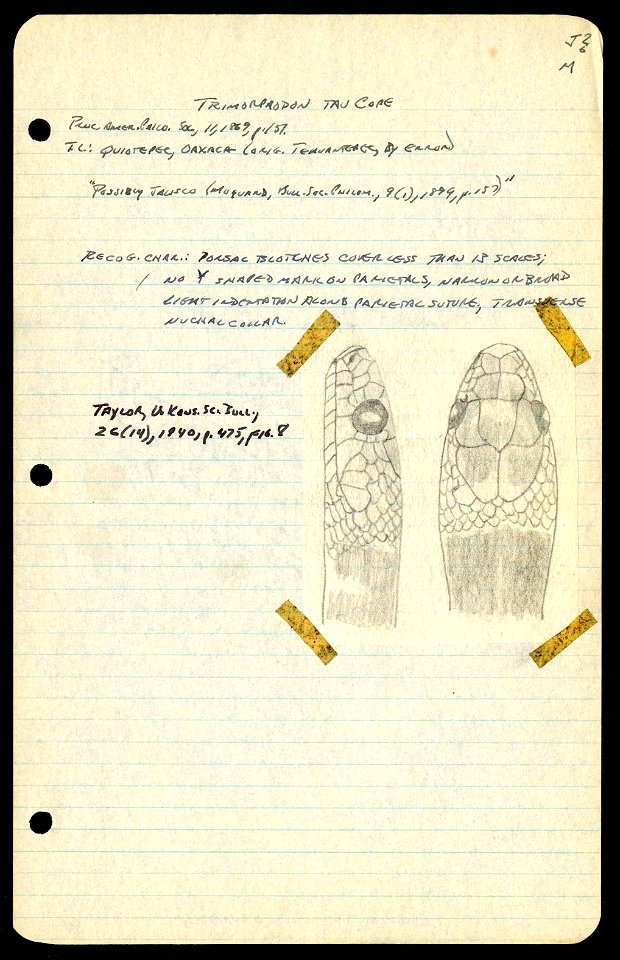 J 2
6
M
TRIMORPHODON TAU COPE
PROC. AMER. PHILO. SOC., 11, 1869, p. 151.
T.L.: QUIOTEPEC, OAXACA (ORIG. TEHUANTEPEC, BY ERROR)
"POSSIBLY JALISCO (MOQUARD, BULL. SOC. PHILOM., 9(1), 1899, p. 157)"
RECOG. CHAR.: DORSAL BLOTCHES COVER LESS THAN 13 SCALES;
NO Y SHAPED MARK ON PARIETALS, NARROW OR BROAD
LIGHT INDENTATION ALONG PARIETAL SUTURE, TRANSVERSE
NUCHAL COLLAR.
TAYLOR, U. KANS. SC. BULL.,
26(14), 1940, p. 475, FIG. 8